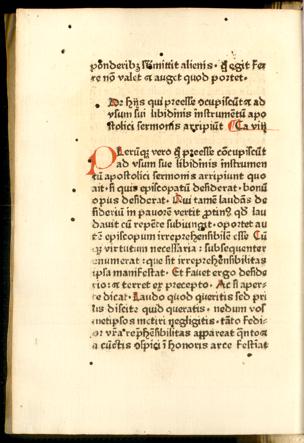 ponderibꝫ submittit alienis. ꝗ egit fer
re nõ valet ⁊ auget quod portet.
De hijs qui preesse cõcupiscũt ⁊ ad
vsum sui libidinis instrumẽtũ apo
stolici sermonis arripiũt Ca viij
PLerũqꝫ vero ꝗ preesse cõcupiscũt
ad vsum sue libidinis instrumen
tũ apostolici sermonis arripiunt quo
ait. si quis episcopatũ desiderat. bonũ
opus desiderat. Qui tamẽ laudãs de
sideriũ in pauorẽ vertit ꝓtinꝰ qđ lau
dauit cũ repẽte subiungit. oportet au
tẽ episcopum irreprehensibilẽ esse Cũ
qꝫ virtutum necessaria subsequenter
enumerat. que sit irreprehensibilitas
ipsa manifestat. Et fauet ergo deside
rio. ⁊ terret ex precepto. Ac si aper
te dicat. Laudo quod queritis sed priꝰ
discite quid queratis. ne dum vos
metipsos metiri negligitis. tãto fedi
or vrã rep̃hẽsibilitas appareat qñto ⁊
a cũctis ꝯspici ĩ honoris arce festĩat